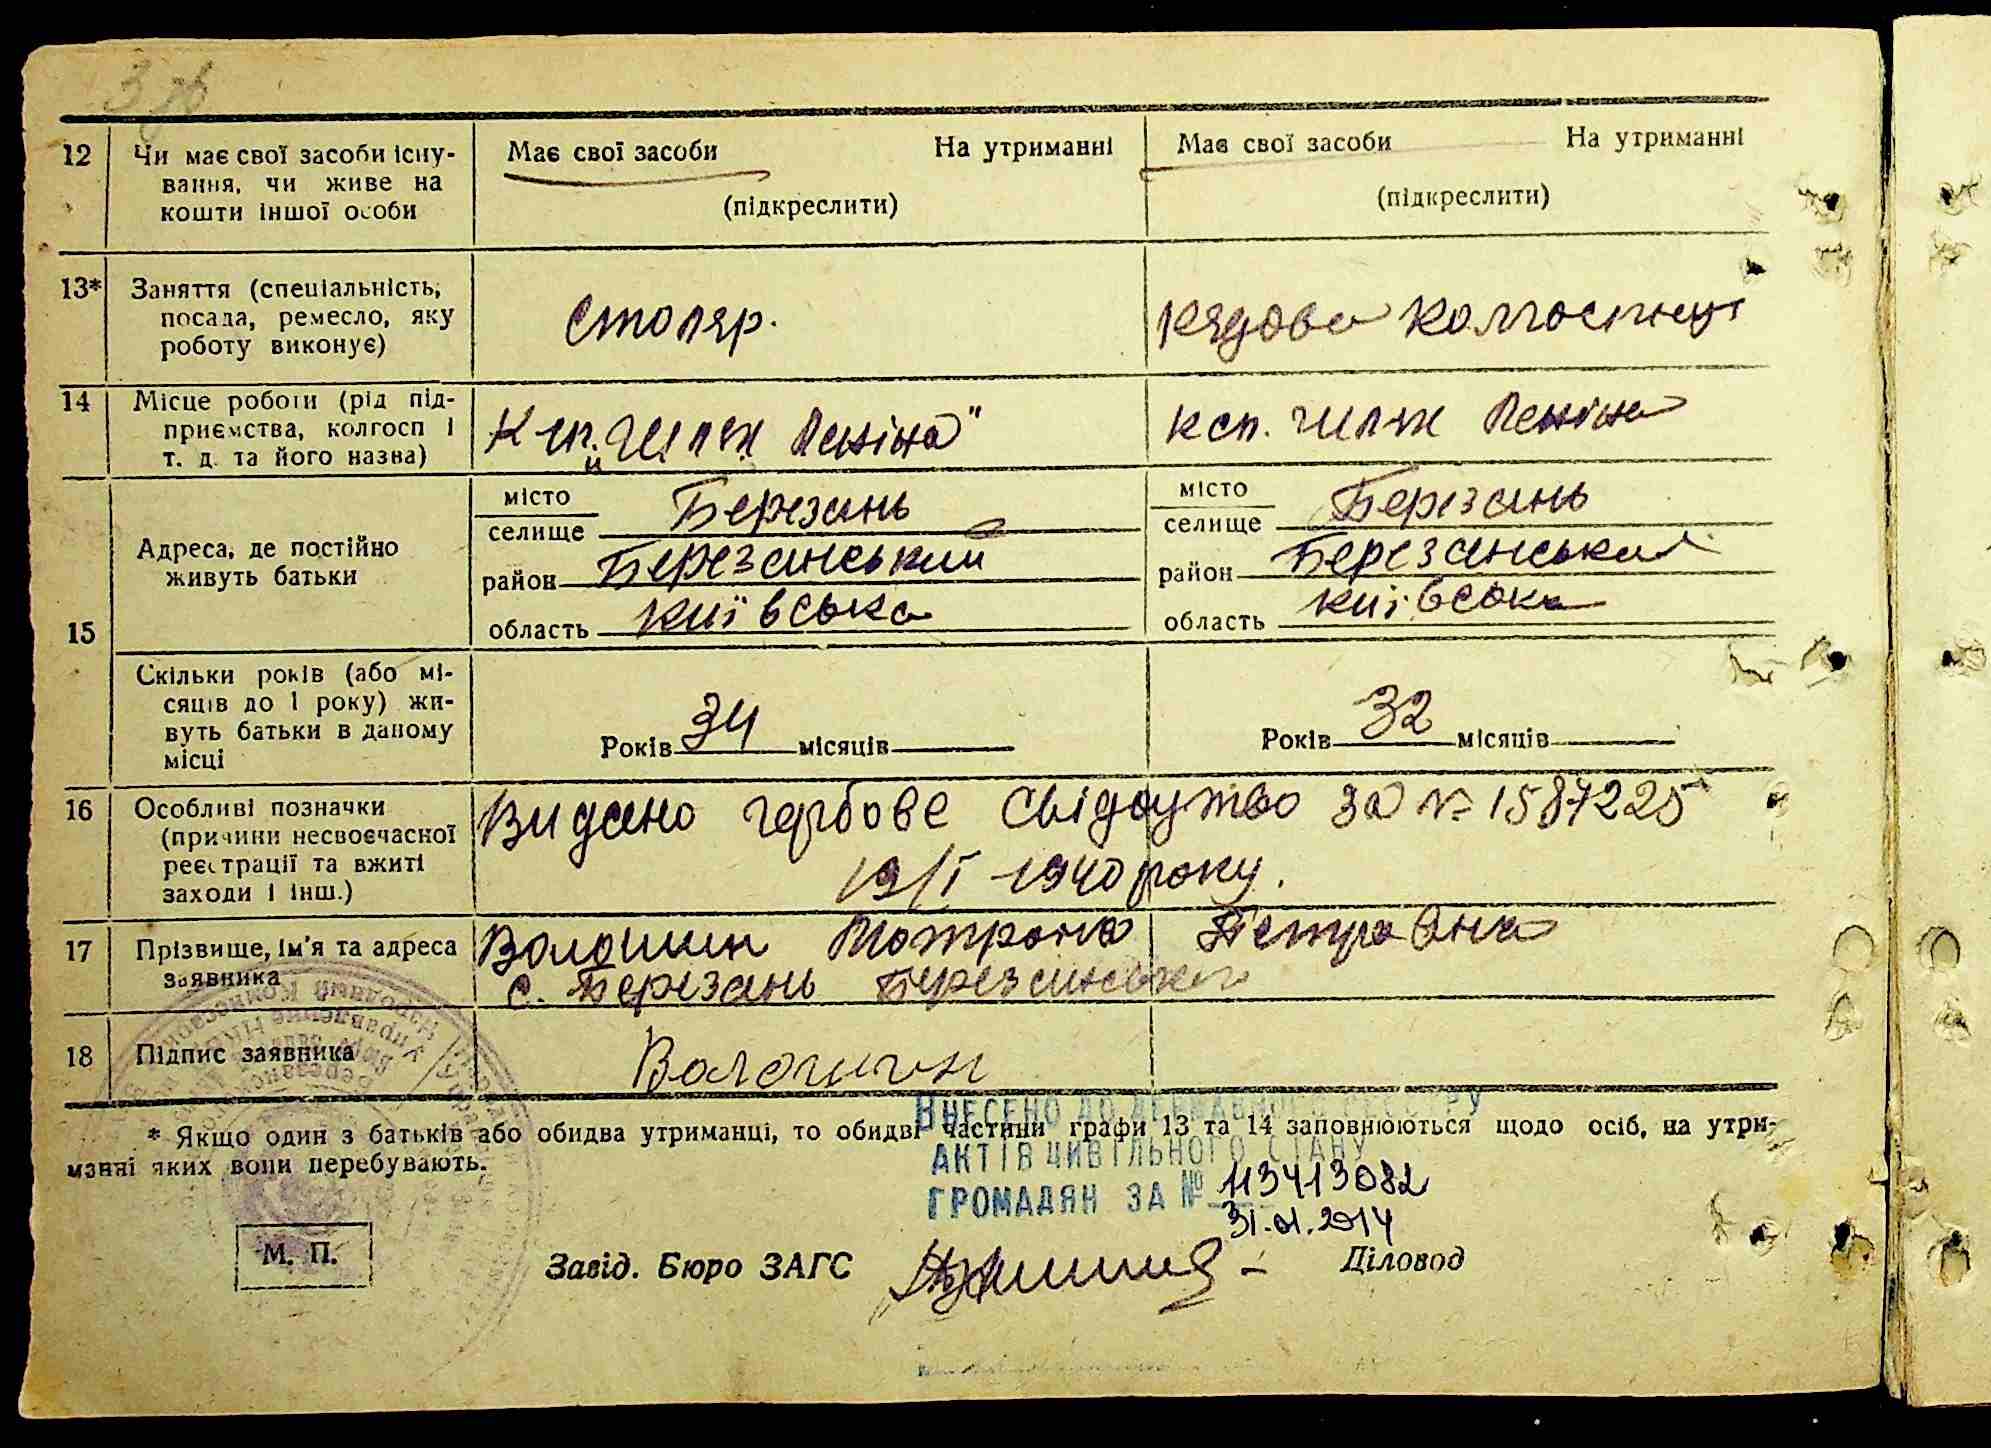 3 зв
12 Чи має свої засоби існу-
вання, чи живе на
кошти іншої особи
Має свої засоби На утриманні
(підкреслити)
Має свої засоби На утриманні
(підкреслити)
13* Заняття (спеціальність,
посада, ремесло, яку
роботу виконує)
Столяр.
Рядова колгоспниця
14 Місце роботи (рід під-
приємства, колгосп і
т. д. та його назва)
Ксп. „Шлях Леніна"
ксп. Шлях Леніна
15 Адреса, де постійно
живуть батьки
місто
селище Березань
район Березанський
область київська
місто
селище Березань
район Березанський
область київська
Скільки років (або мі-
сяців до 1 року) жи-
вуть батьки в даному
місці
Років 34 місяців
Років 32 місяців
16 Особливі позначки
(причини несвоєчасної
реєстрації та вжиті
заходи і інш.)
Видано гербове свідоцтво за № 1587225
19/I 1940 року.
17 Прізвище, ім'я та адреса
заявника
Волошин Мотрона Петровна
с. Березань Березанського
18 Підпис заявника
Волошин
* Якщо один з батьків або обидва утриманці, то обидві частини графи 13 та 14 заповнюються щодо осіб, на утри-
манні яких вони перебувають.
ВНЕСЕНО ДО ДЕРЖАВНОГО РЕЄСТРУ
АКТІВ ЦИВІЛЬНОГО СТАНУ
ГРОМАДЯН ЗА № 113413082
31.01.2014
М. П.
Завід. Бюро ЗАГС
Діловод